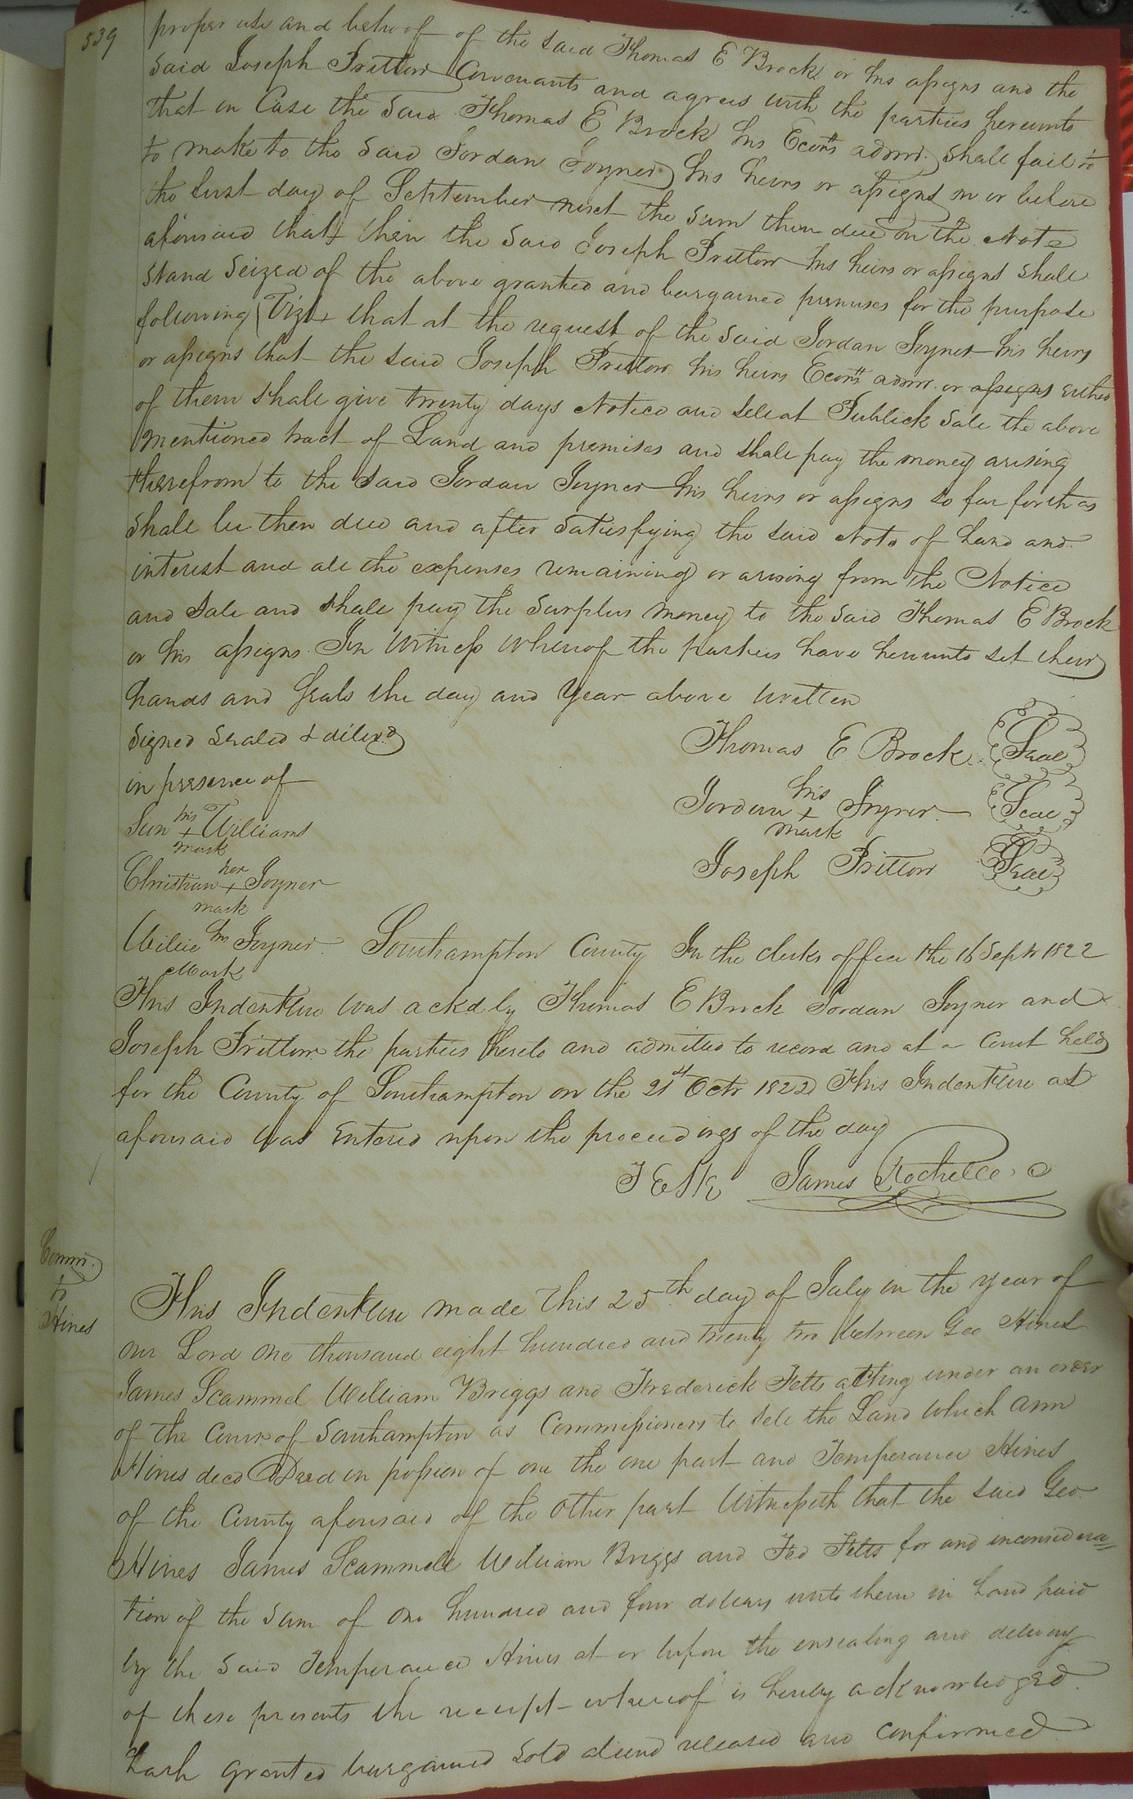 539
proper use and behoof of the said Thomas E Brock or his assigns and the
said Joseph Prittow Covenants and agrees with the parties hereunto
that in Case the said Thomas E Brock his Econrs admr. shall fail
to make to the said Jordan Joyner his heirs or assigns on or before
the last day of September next the sum then due on the Note
aforesaid that then the said Joseph Prittow his heirs or assigns shall
stand seized of the above granted and bargained premises for the purpose
following (Vizt that at the request of the said Jordan Joyner his heirs
or assigns that the said Joseph Prittow his heirs Econrs admr. or assigns either
of them shall give twenty days Notice and sell at Publick sale the above
mentioned tract of Land and premises and shall pay the money arising
therefrom to the said Jordan Joyner his heirs or assigns so far forth as
shall be then due and after satisfying the said Note of hand and
interest and all the expenses remaining or arising from the Notice
and sale and shall pay the surplus money to the said Thomas E Brock
or his assigns. In Witness whereof the parties have hereunto set their
hands and seals the day and year above written
Signed sealed & delivd
in presence of
Thomas E Brock Seal
Jordan his + mark Joyner Seal
Joseph Prittow Seal
his + Williams
mark
Christian her + Joyner
mark
Willie his Joyner
Mark
Southampton County In the clerks office the 16 Sept 1822
This Indenture was ackd by Thomas E Brock Jordan Joyner and
Joseph Prittow the parties thereto and admitted to record and at a Court held
for the County of Southampton on the 21st Octr 1822 This Indenture as
aforesaid was Entered upon the proceedings of the day
Teste James Rochelle C
Commr.
to
Hines
This Indenture made this 25th day of July in the year of
our Lord one thousand eight hundred and twenty two between Geo Hines
James Scammel William Briggs and Frederick Fetts acting under an order
of the Court of Southampton as Commissioners to sell the Land which Ann
Hines decd Died in possion of one the one part and Temperance Hines
of the County aforesaid of the other part Witnesseth that the said Geo
Hines James Scammell William Briggs and Fed Fetts for and in considera=
tion of the sum of one hundred and four dollars unto them in hand paid
by the said Temperance Hines at or before the ensealing and delivery
of these presents the receipt whereof is hereby acknowledged
hath granted bargained sold aliend released and confirmed